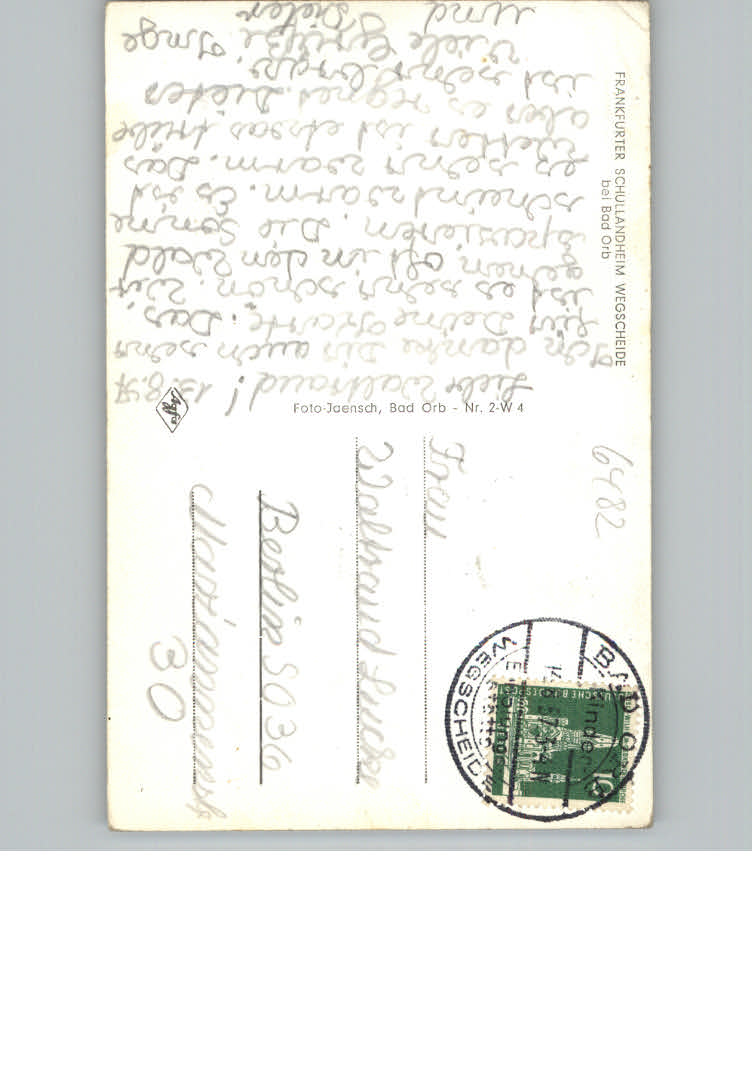 FRANKFURTER SCHULLANDHEIM WEGSCHEIDE
bei Bad Orb
Liebe Waltraud! 13.8.57
Ich danke Dir auch sehr
für Deine Karte. Das
ist es sehr schön. Wir
gehen oft in den Wald
spazieren. Die Sonne
scheint warm. Es ist
es sehr warm. Das
Wetter ist etwas trübe
aber es regnet. Dieter
ist sehr
Viele Grüße Inge
und Dieter
Foto-Jaensch, Bad Orb - Nr. 2-W 4
Agfa
6482
Frau
Waltraud Lucke
Berlin SO 36
30
BAD ORB
WEGSCHEIDE
DEUTSCHE BUNDESPOST
10